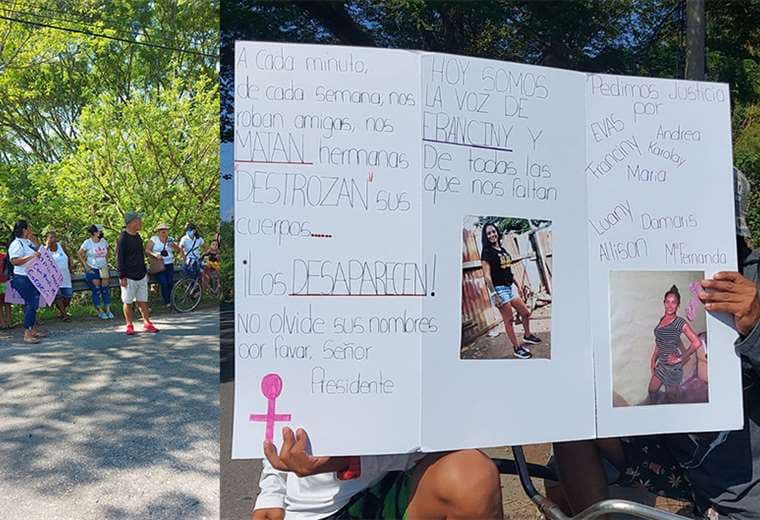 A cada minuto,
de cada semana, nos
roban amigas, nos
MATAN hermanas
"DESTROZAN" sus
cuerpos.....
¡Los DESAPARECEN!
No olvide sus nombres
por favor, Señor
Presidente
HOY SOMOS
LA VOZ DE
FRANCINY Y
De todas las
que nos faltan
Pedimos Justicia
por
EVAS Andrea
Franciny Karolay
Maria
Luany Damaris
Allison Mª Fernanda